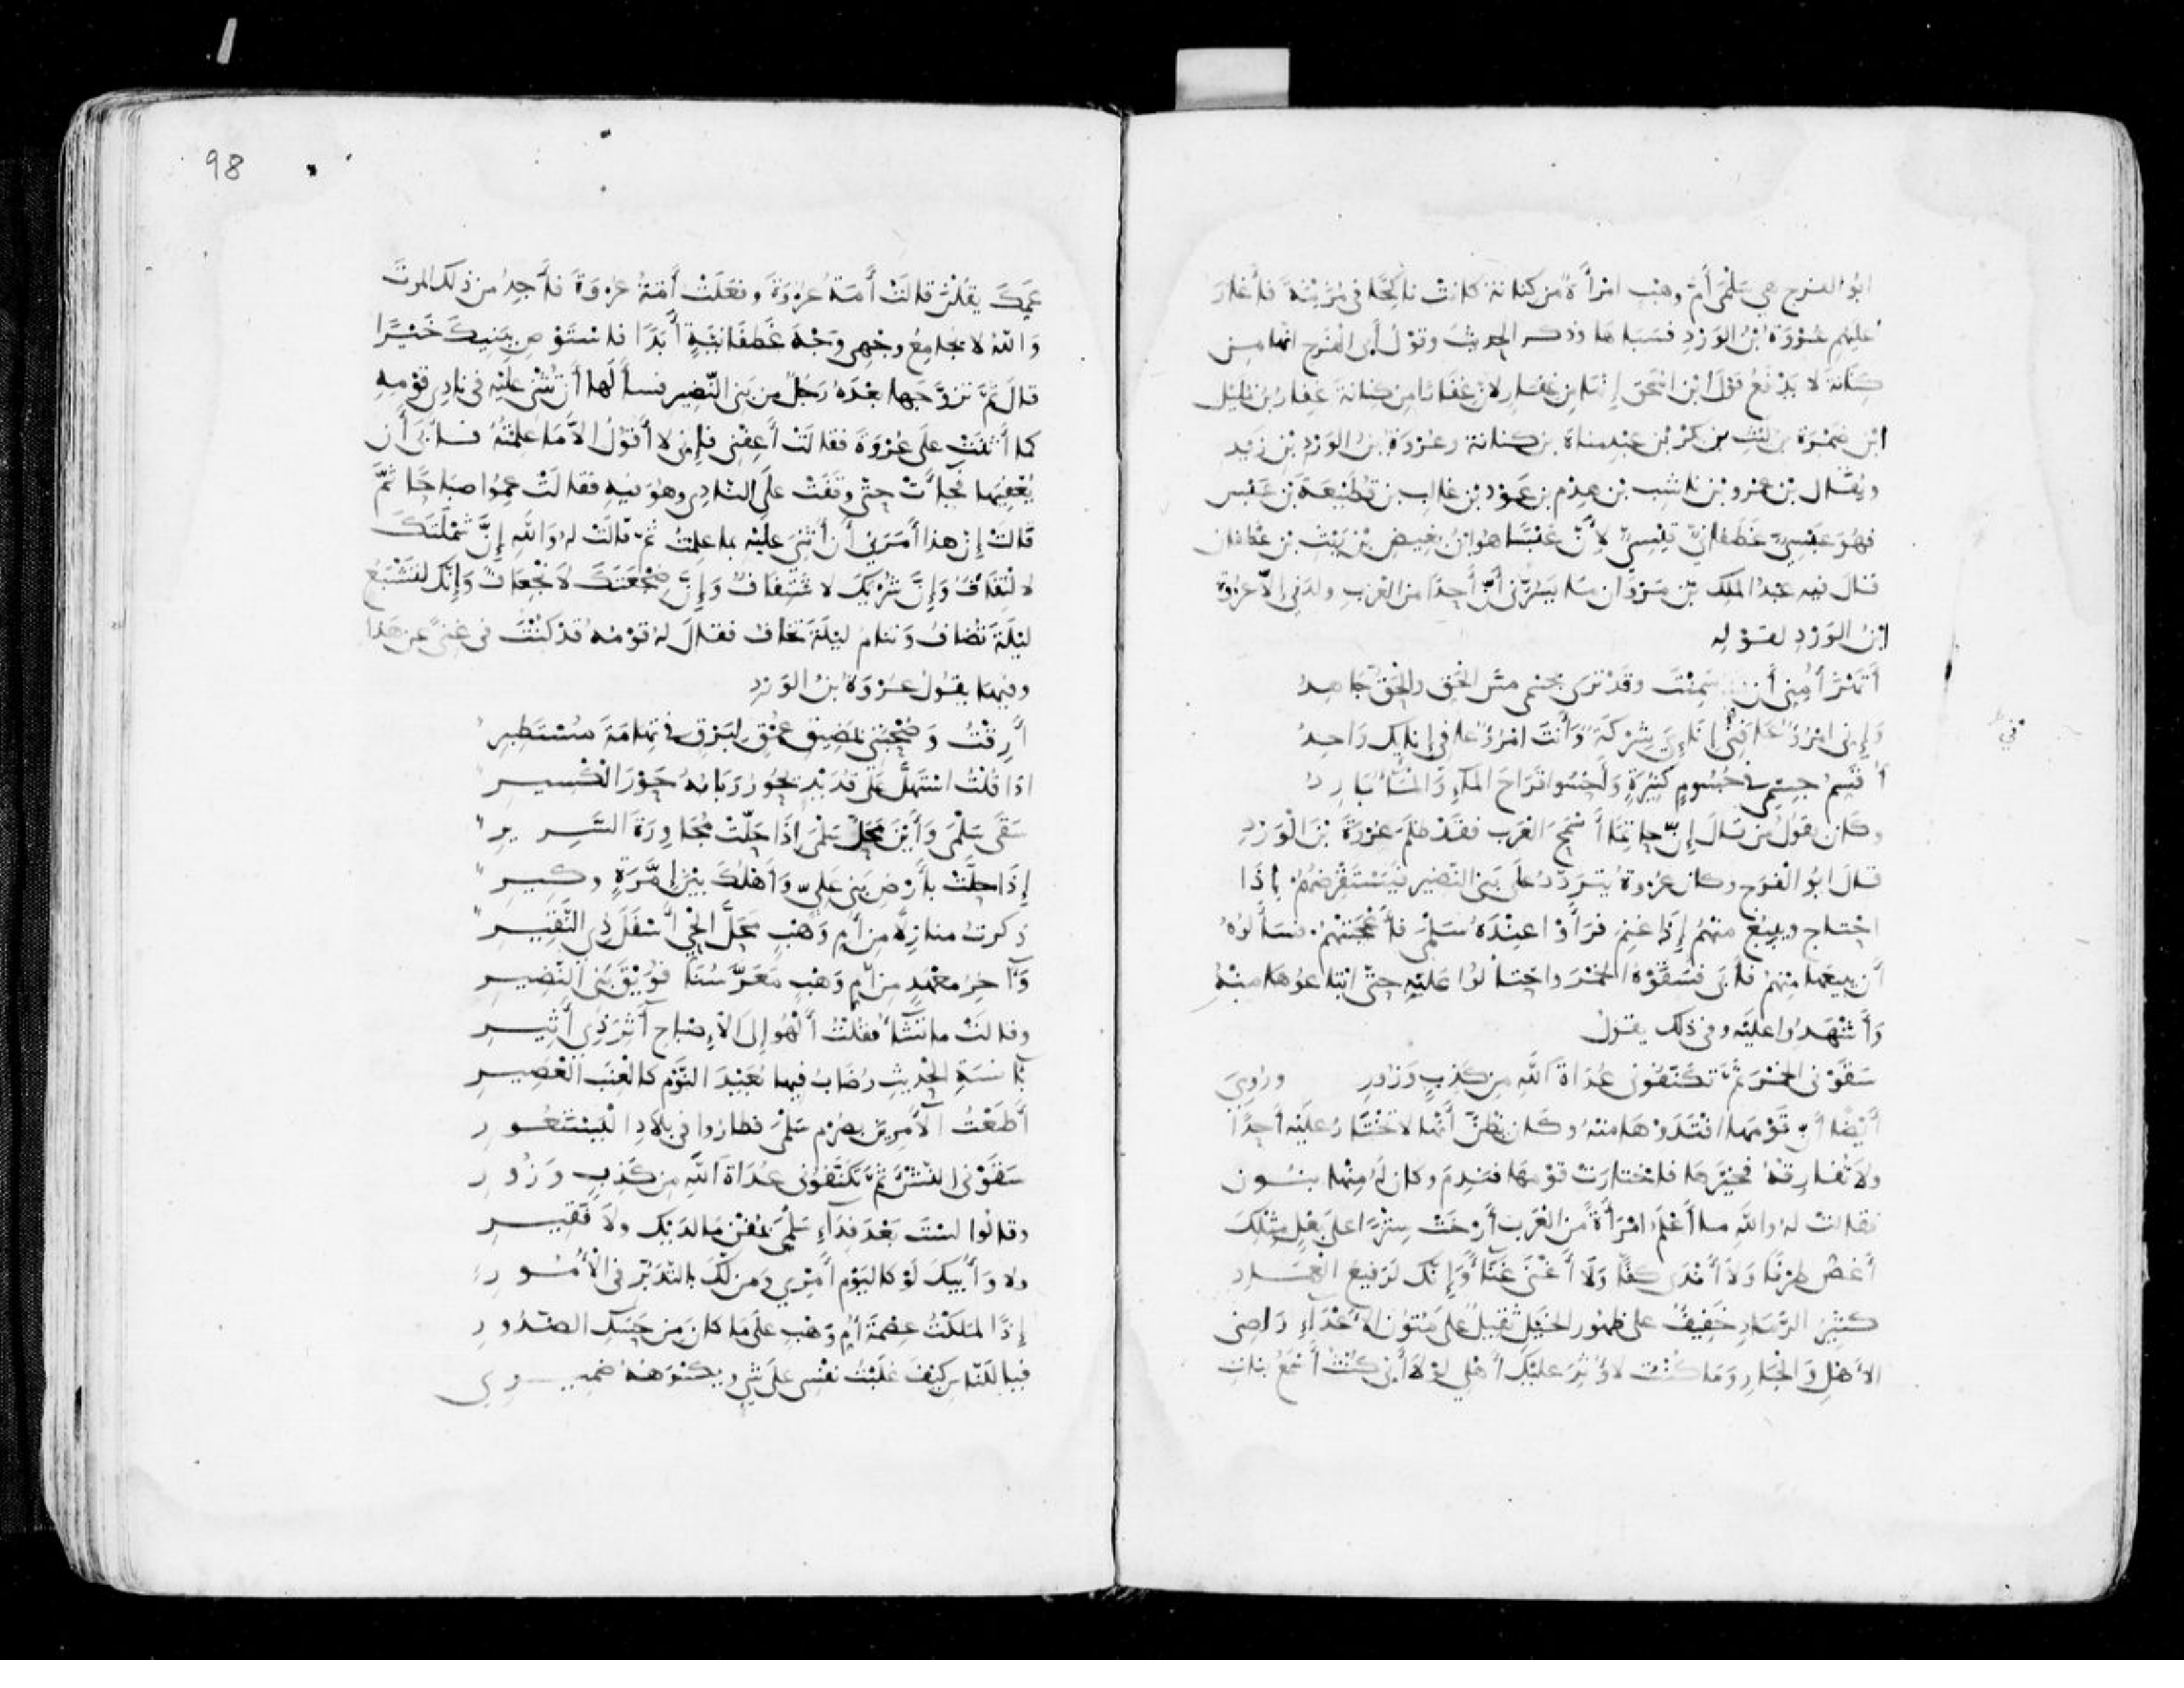 ابُو الفرج هي سَلْمَى أمّ وهْب امْرأَةٌ من كنانة كانتْ ناكِحًا في مُزَيْنَة فأَغارَ
عليهم عُرْوَةُ بْنُ الوَرْدِ فسَبَاهَا وذكر الحديثَ وقوْلُ أبي الفَرَج انّها مِن
كِنَانَةَ لا يَدْفَعُ قوْلَ ابْن اسْحَق إنّها مِن غِفَار لانّ غِفَارًا من كنانةَ غِفار بْن مُليْل
ابْن ضَمْرَة بْن ليْثِ بْن بكْر بْن عبْدِ مناةَ بْن كنانة وعُرْوَةُ بْنُ الوَرْدِ بْن زَيْد
ويُقَال بْن عمْرو بْن ناشِب بْن هِدْم بن عَوْد بْن غالب بن قُطَيْعَةَ بْن عَبْس
فهُوَ عَبْسِيّ غَطَفانِيّ قَيْسِيّ لأَنّ عَبْسًا هو ابْنُ بَغِيض بْن رَيْثِ بْن غطَفان
قال فيه عبْدُ الملكِ بْن مَرْوَان مَا يَسُرُّني أنّ أَحدًا من العَربِ ولدَني إلّا عُرْوة
ابْنُ الوَرْدِ لقَوْلِه
أَتَهْزَأُ مِنِّي أَن سَمِنْتَ وقَدْ تَرَى بجسْمي مسَّ الحَقِّ والحَقُّ جَاهِدُ
وَإِنّي امْرُؤٌ عَافِي إِنَائِيَ شِرْكَةٌ وَأَنْتَ امْرُؤٌ عافِي إنائِكَ وَاحِدُ
في
أُقَسِّمُ جِسْمِي في جُسُومٍ كَثِيرَةٍ وَأَحْسُوا قَرَاحَ المَاءِ وَالمَاءُ بَارِدُ
وكَان يقولُ من قالَ إنّ حاتِمًا أَسْمَحُ العَرَب فقَدْ ظلَمَ عُرْوَةَ بْنَ الْوَرْدِ
قالَ ابُو الْفَرَج وكان عُرْوةُ يتردّدُ علَى بَنِي النّضِير فيَسْتَقْرِضُهُمْ إذَا
احْتاج ويبِيعُ منْهُم إذَا غنِمَ فرَأَوْا عِنْدَهُ سَلْمَى فأَعْجَبَتْهُمْ فسَأَلُوهُ
أَن يبيعَها مِنْهم فأبَى فسَقَوْهُ الخَمْرَ واحْتالُوا عَليْهِ حتّى ابْتاعُوها مِنْهُ
وَأَشْهَدُوا عليْه وفي ذلك يقولُ
سَقَوْني الخَمْرَ ثُمّ تكَنَّفُوني عُدَاةُ اللَّهِ مِن كَذِبٍ وَزُورِ ورُوِيَ
أَيْضا أنّ قَوْمَها افْتَدَوْهَا منْهُ وكَان يظُنّ أنّها لا تَخْتَارُ علَيْهِ أَحدًا
ولا تُفارِقُهُ فخَيَّرهَا فاخْتارَتْ قوْمَها فنَدِمَ وكان لَهُ مِنْها بنُون
فقالتْ لهُ واللَّهِ ما أَعْلَمُ امْرَأةً مِن العَرَب أَرْخَتْ سِتْرًا علَى بَعْلٍ مِثْلِكَ
أَغَضَّ طرْفًا وَلَا أَنْدَى كفًّا وَلَا أَغْنَى غَنَاءً وَإِنّك لَرَفيعُ الْعِمَادِ
كثيرُ الرَّمَادِ خَفِيفٌ علَى ظهُور الخَيْلِ ثَقِيلٌ علَى مُتُون الأَعْدَاءِ رَاضِي
الأَهْلِ وَالجَارِ وَمَا كُنْت لأُوثِرَ علَيْكَ أَهْلي لوْلَا أَنّي كُنْتُ أَسْمَعُ بناتِ
98
عَمِّكَ يقُلْنَ قالَتْ أَمَةُ عُرْوَةَ وفعَلَتْ أَمَةُ عُرْوَةَ فأَجِدُ من ذلكَ الموتَ
وَاللَّهِ لا يُجامِعُ وجْهي وَجْهَ غَطَفَانِيَّةٍ أَبَدًا فاسْتَوْصِ بِبَنِيكَ خَيْرًا
قالَ ثُمّ تزوَّجَها بعْدَهُ رَجُلٌ مِن بَنِي النّضِير فسأَلَها أَن تُثْنِيَ عليْه في نادِي قوْمِهِ
كما أَثْنَتْ علَى عُرْوَةَ فقالَتْ أَعِفْنِي فإنّي لا أَقُولُ الاّ مَا علِمْتُهُ فأَبَى أَن
يُعْفِيَها فجاءَتْ حتّى وقَفَتْ علَى النّادِي وهُوَ فيهِ فقالَتْ عِمُوا صَبَاحًا ثمّ
قالَتْ إنّ هذا أَمَرَني أَن أُثْنِيَ علَيْه بما علِمْتُ ثمّ قالَتْ لهُ وَاللَّهِ إنَّ شَمْلَتَكَ
لالْتِفَافٌ وَإنَّ شُرْبَكَ لاشْتِفافٌ وَإنّ ضِجْعَتَكَ لانْجِعَافٌ وَإنّكَ لتَشْبَعُ
ليْلَةَ تُضافُ وَتنامُ ليْلَةَ تَخافُ فقالَ لهُ قوْمُهُ قدْ كُنْتَ في غِنًى عن هَذا
وفيها يقُولُ عُرْوَةُ بْنُ الوَرْدِ
أَرِقْتُ وَصُحْبَتِي بمَضِيقِ عُمْقٍ لِبَرْقٍ في تِهَامَةَ مُسْتَطِيرِ
اذَا قُلْتُ اسْتَهَلَّ علَى قُدَيْدٍ يَحُورُ رَبَابُهُ حَوْرَ الْكَسِيرِ
سَقَى سَلْمَى وَأَيْنَ مَحَلُّ سَلْمَى إذَا حَلَّتْ مُجَاوِرَةَ السَّرِيرِ
إِذَا حلَّتْ بأَرْضِ بَنِي عَلِيٍّ وَأَهْلُكَ بيْنَ إمَّرَةٍ وكِيرِ
ذكرتُ منازِلًا مِن أُمّ وَهْبٍ مَحَلَّ الحَيّ أَسْفَلَ ذِي النَّقِيرِ
وَآخِرُ معْهَدٍ مِن أمِّ وَهْبٍ مُعَرَّسُنَا فُوَيْقَ بَنِي النَّضِيرِ
وقالَتْ ما تَشَاءُ فقُلْتُ أَلْهُو إلى الأَصْبَاحِ آثَرَ ذِي أَثِيرِ
بآنِسَةِ الحَدِيثِ رُضَابُ فِيها بُعَيْدَ النَّوْمِ كالْعِنَبِ العَصِيرِ
أَطَعْتُ الآمِرِينَ بصُرْمِ سَلْمَى فطارُوا في بلادِ الْيَسْتَعُورِ
سَقَوْنِي النّسْءَ ثُمّ تَكَنَّفُونِي عُدَاةُ اللَّهِ مِن كَذِبٍ وَزُورِ
وقالُوا لسْتَ بَعْدَ فِدَاءِ سَلْمَى بمُغْنٍ مَا لدَيْك ولَا فَقِيرِ
ولا وَأَبِيكَ لَوْ كاليَوْمِ أَمْرِي وَمن لَكَ بالتّدَبُّرِ في الأُمُورِ
إِذًا لملَكْتُ عِصْمَةَ أُمِّ وَهْبٍ علَى مَا كانَ مِن حَسَكِ الصُّدُورِ
فيا للنّاسِ كيْفَ غلَبْتُ نفْسِي علَى شَيْءٍ ويكْرَهُهُ ضَمِيرِي